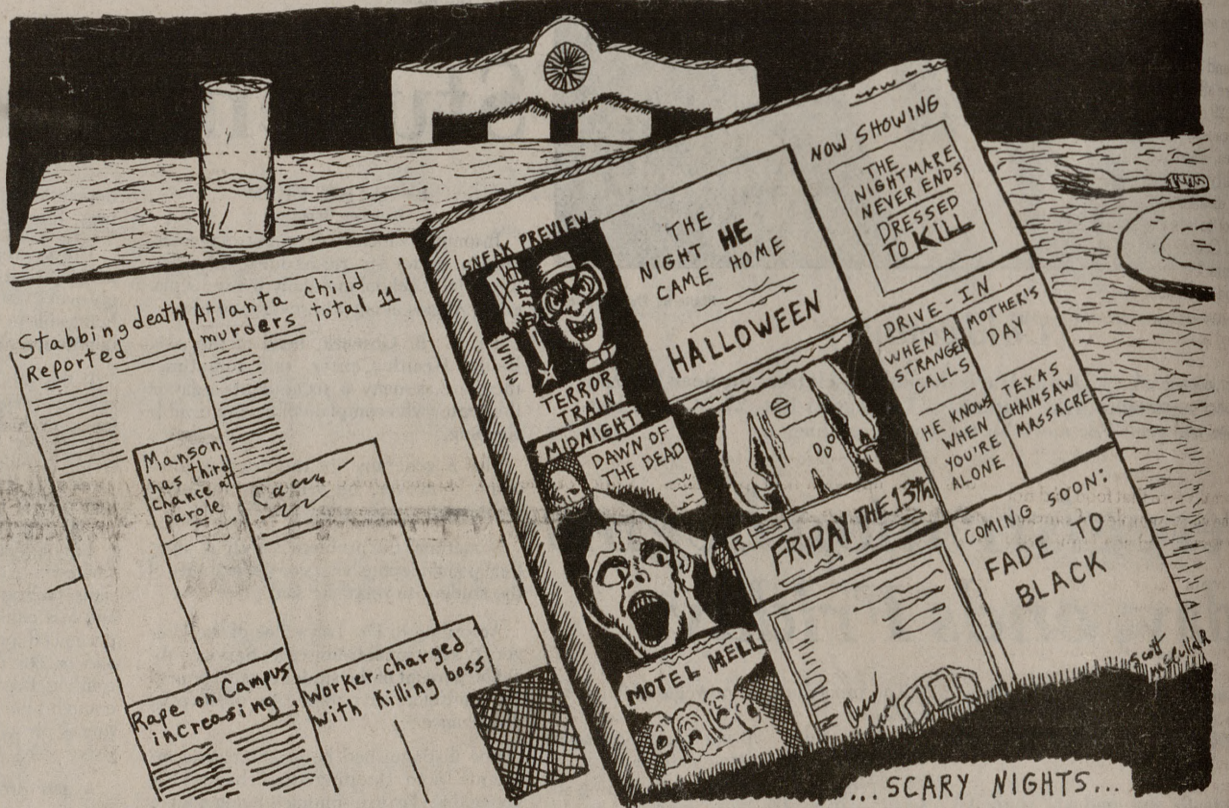 Stabbing death
Reported
Atlanta child
murders total 11
Manson
has third
chance at
parole
Rape on Campus
increasing
Worker charged
with killing boss
SNEAK PREVIEW
TERROR
TRAIN
MIDNIGHT
DAWN OF
THE DEAD
MOTEL HELL
THE
NIGHT HE
CAME HOME
HALLOWEEN
R
FRIDAY THE 13th
NOW SHOWING
THE
NIGHTMARE
NEVER ENDS
DRESSED
TO KILL
DRIVE-IN
WHEN A
STRANGER
CALLS
MOTHER'S
DAY
HE KNOWS
WHEN
YOU'RE
ALONE
TEXAS
CHAINSAW
MASSACRE
COMING SOON:
FADE TO
BLACK
Scott
McCullar
...SCARY NIGHTS...